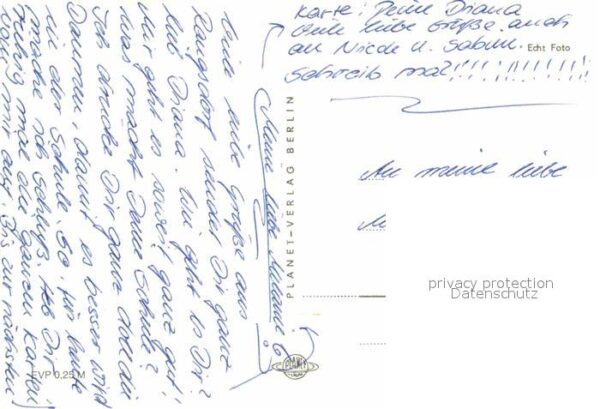 Meine liebe
Viele liebe Grüße aus
Rangsdorf sendet Dir ganz
lieb Diana. Wie geht es Dir?
Mir geht es soweit ganz gut!
Was macht Deine Schule?
Ich drücke Dir ganz doll die
Daumen, damit es besser wird
mit der Schule. So, für heute
mache ich Schluß, heb Dir
ruhig mal die ganzen Karten
von mir auf. Bis zur nächsten
Karte! Deine Diana
Viele liebe Grüße auch
an Nicole u. Sabin.
Schreib mal!!!!!!!!!!
Echt Foto
An meine liebe
M
PLANET-VERLAG BERLIN
PLANET
EVP 0,25 M
privacy protection
Datenschutz